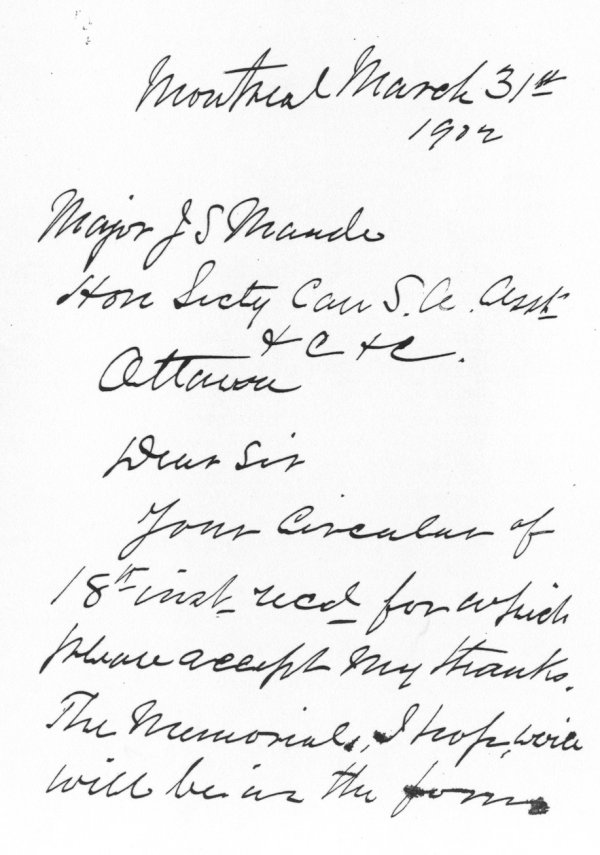 Montreal March 31st
1902
Major J S Maude
Hon Secty Can S. A. Asst
& C & C.
Ottawa
Dear Sir
Your Circular of
18th inst. recd for which
please accept my thanks.
The Memorial, I hope,
will be in the form